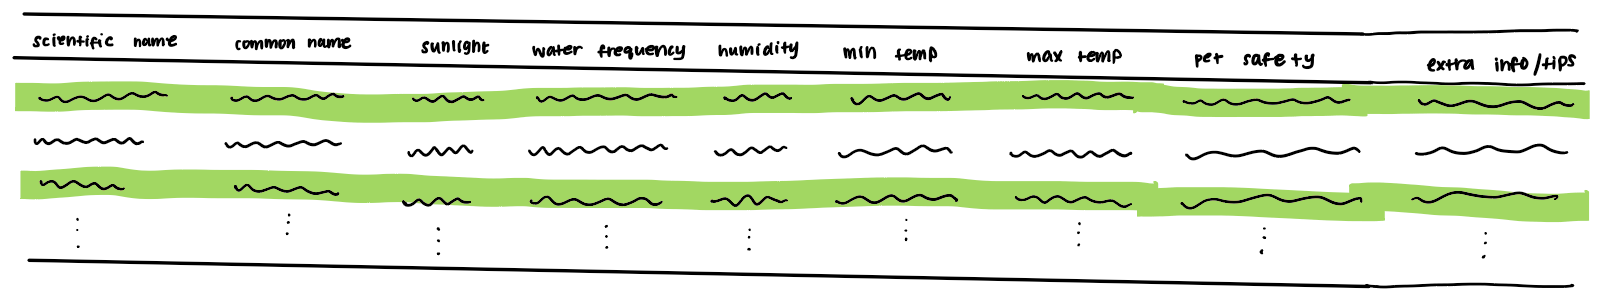 scientific name common name sunlight water frequency humidity min temp max temp pet safety extra info/tips